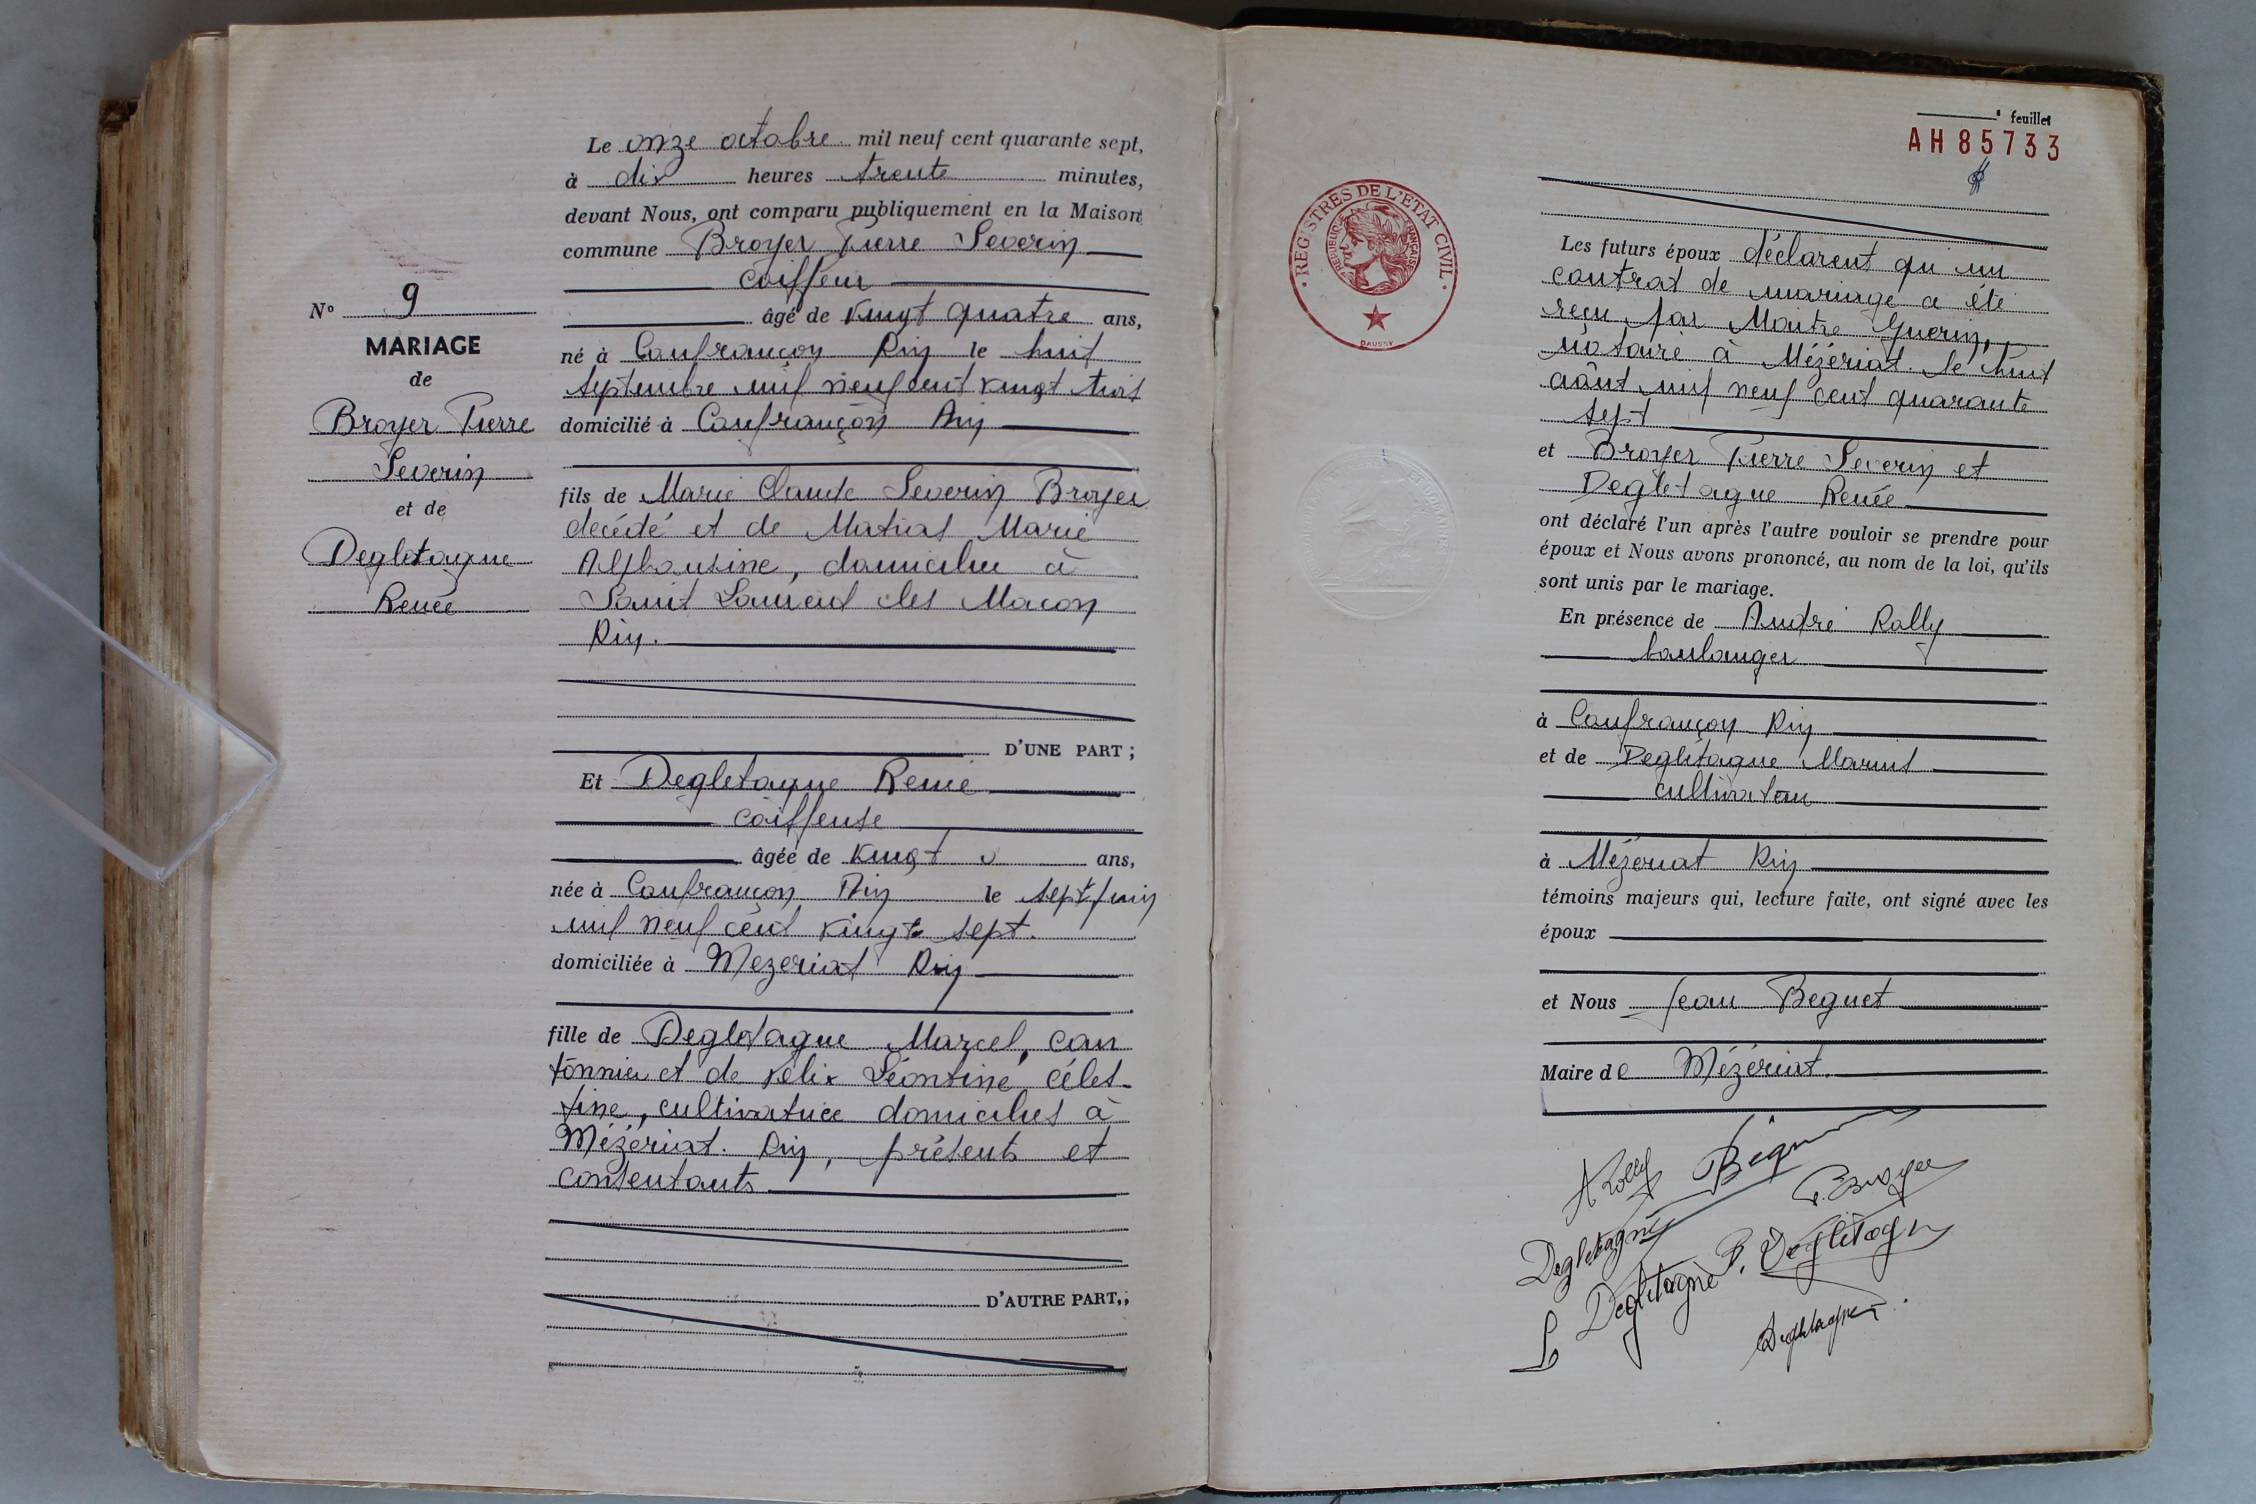 Le onze octobre mil neuf cent quarante sept,
à dix heures trente minutes,
devant Nous, ont comparu publiquement en la Maison
commune Broyer Pierre Severin
coiffeur
âgé de vingt quatre ans,
né à Confrançon Ain le huit
septembre mil neuf cent vingt trois
domicilié à Confrançon Ain
fils de Marie Claude Severin Broyer
decédé et de Matias Marie
Alphonsine, domiciliée à
Saint Laurent les Macon
Ain.
D'UNE PART ;
Et Degletagne Renée
coiffeuse
âgée de vingt ans,
née à Confrançon Ain le sept juin
mil neuf cent vingt sept.
domiciliée à Mezeriat Ain
fille de Degletagne Marcel, can
tonnier et de Félix Léontine céles-
tine, cultivatrice domiciliés à
Mézériat. Ain, présents et
consentants
D'AUTRE PART,;
N° 9
MARIAGE
de
Broyer Pierre
Severin
et de
Degletagne
Renée
feuillet
AH 85733
REGISTRES DE L'ETAT CIVIL
REPUBLIQUE FRANÇAISE
DAUSSY
Les futurs époux déclarent qu'un
contrat de mariage a été
reçu par Maitre Guerin,
notaire à Mézériat. le huit
août mil neuf cent quarante
sept
et Broyer Pierre Severin et
Degletagne Renée
ont déclaré l'un après l'autre vouloir se prendre pour
époux et Nous avons prononcé, au nom de la loi, qu'ils
sont unis par le mariage.
En présence de André Rolly
boulanger
à Confrançon Ain
et de Degletagne Marius
cultivateur
à Mézériat Ain
témoins majeurs qui, lecture faite, ont signé avec les
époux
et Nous Jean Beguet
Maire de Mézériat.
A Rolly
P. Broyer
Degletagne
R. Degletagne
L Degletagne
Degletagne